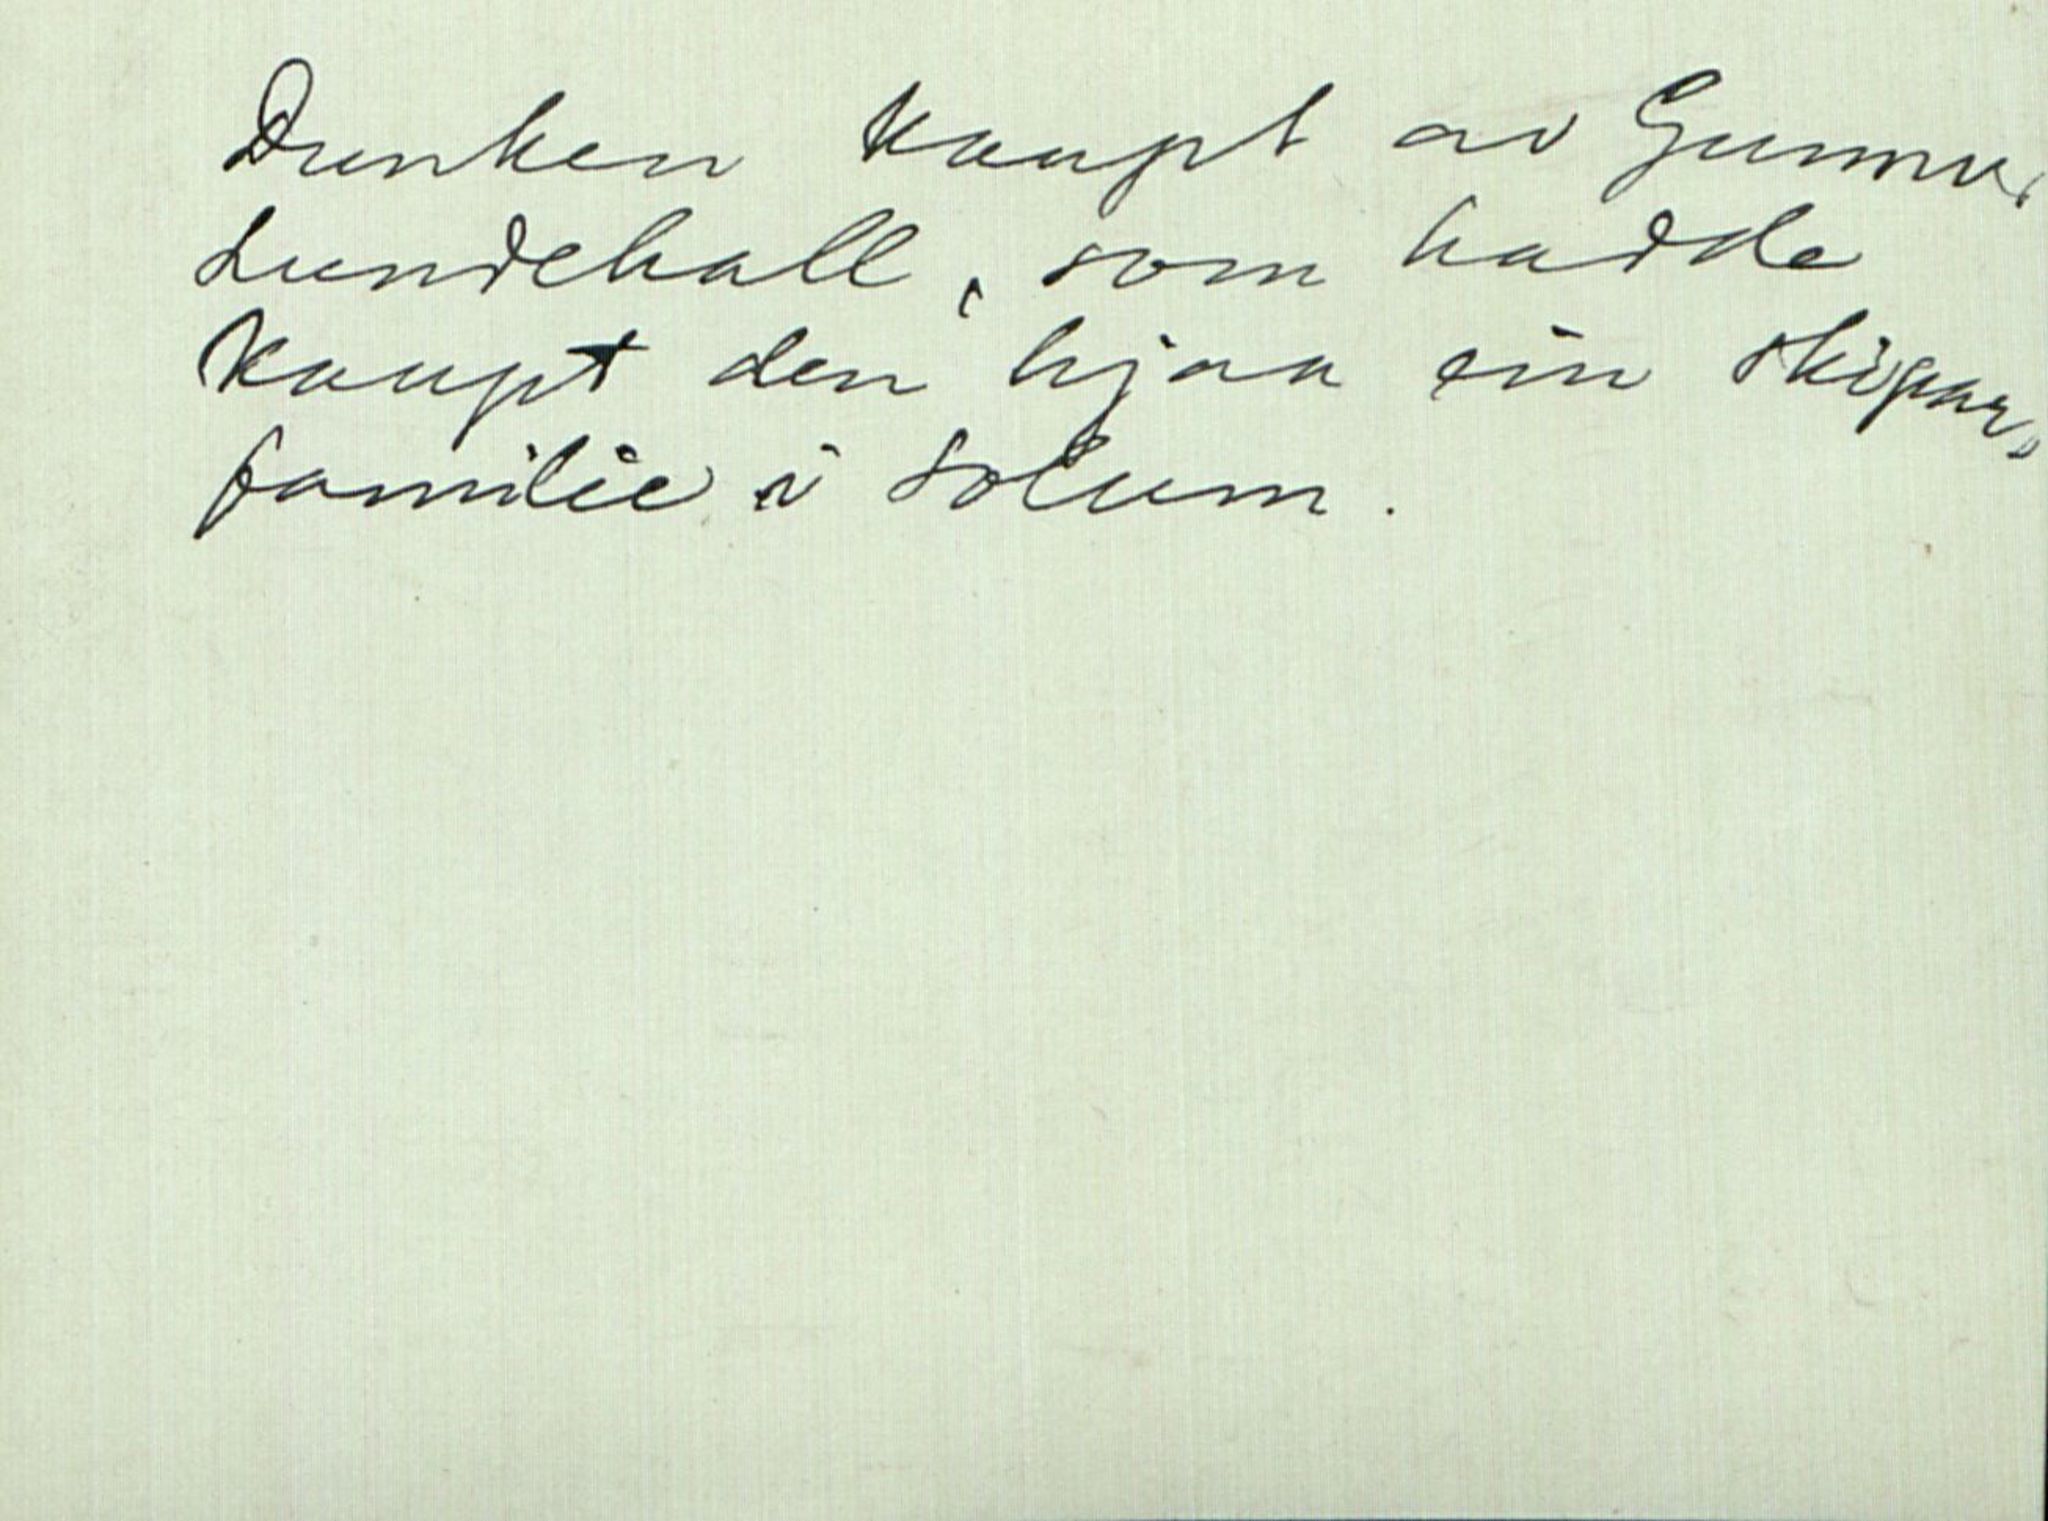 Dunken kaupt av Gunnar
Lundehall, som hadde
kaupt den hjaa ein skipar-
familie i Solum.